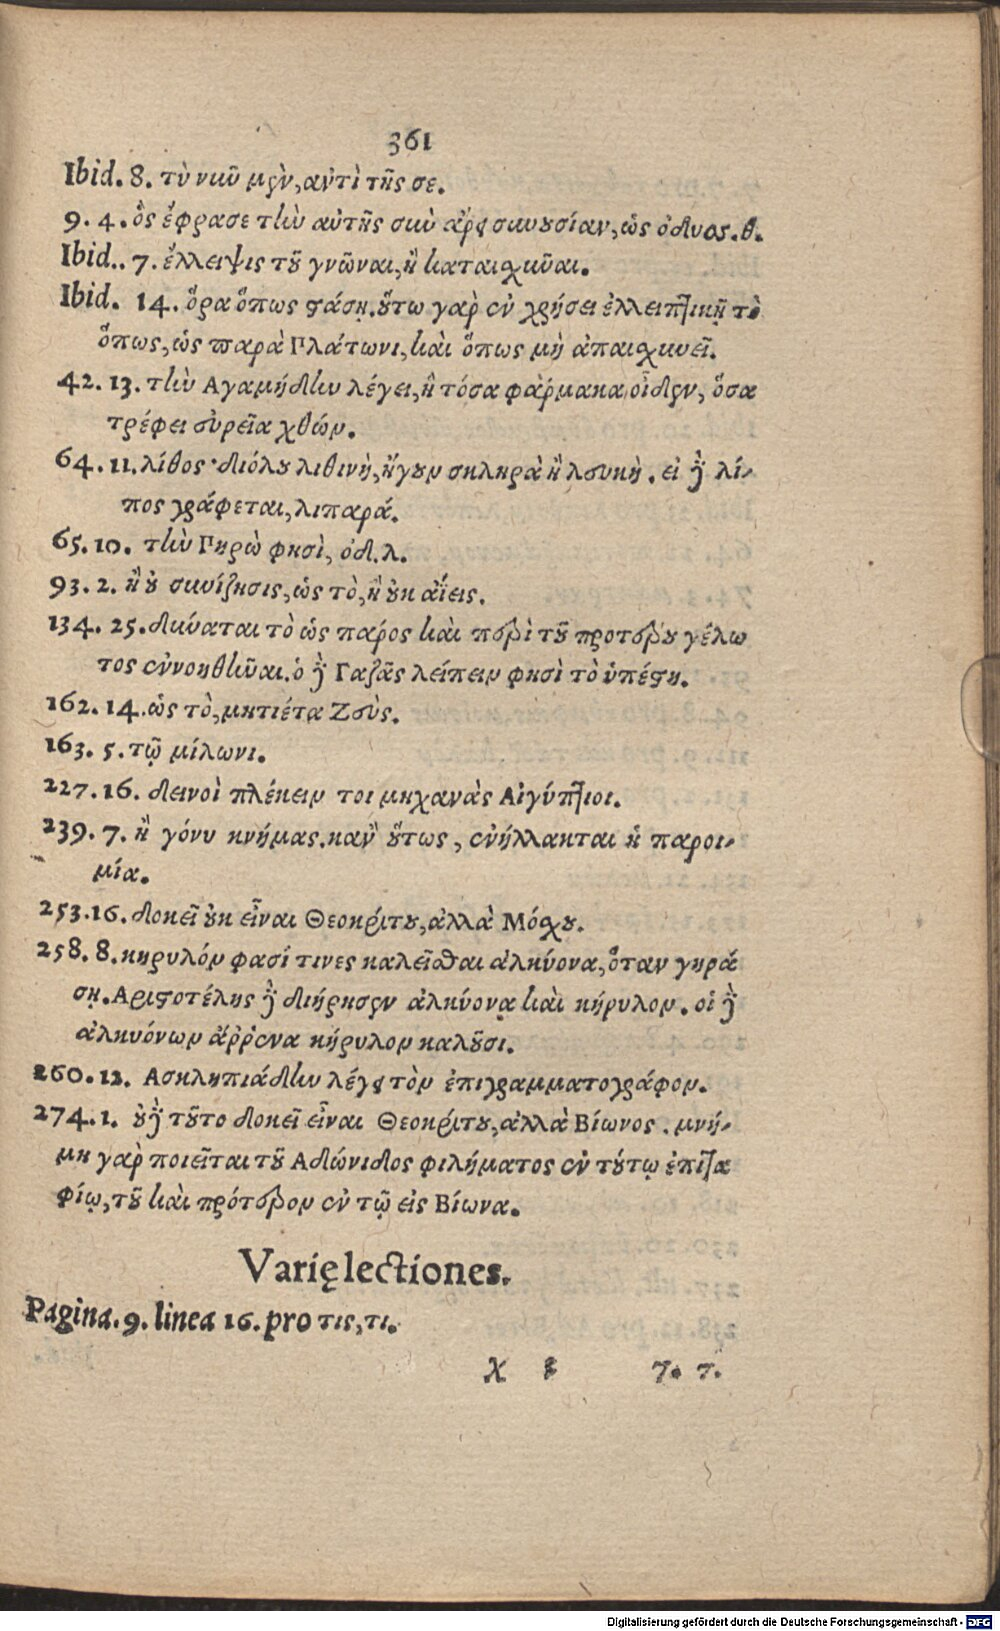 361
Ibid. 8. τὺ νιῦ μὲν, αὐτὶ τῆς σε.
9. 4. ὃς ἔφρασε τὴν αὐτῆς σὺν ἄρει συνουσίαν, ὡς ὀδυσ. θ.
Ibid.. 7. ἔλλειψις τοῦ γνῶναι, ἢ καταισχῦναι.
Ibid. 14. ὅρα ὅπως στάσῃ. οὕτω γὰρ ἐν χρήσει ἐλλειπτικῇ τὸ
ὅπως, ὡς παρὰ Πλάτωνι, καὶ ὅπως μὴ ἀπαισχυνεῖ.
42. 13. τὴν Αγαμήδην λέγει, ἣ τόσα φάρμακα οἶδεν, ὅσα
τρέφει εὐρεῖα χθών.
64. 11. λίθος· διόλου λιθινὴ, ἤγουν σκληρὰ ἢ λευκὴ. εἰ δὲ λί-
πος γράφεται, λιπαρά.
65. 10. τὴν Πηρὼ φησὶ, ὀδ. λ.
93. 2. ἢ οὐ συνίζησις, ὡς τὸ, ἢ οὐκ ἀΐεις.
134. 25. δύναται τὸ ὡς πάρος καὶ περὶ τοῦ προτέρου γέλω
τος ἐννοηθῆναι. ὁ δὲ Γαζᾶς λείπειν φησὶ τὸ ὑπέστη.
162. 14. ὡς τὸ, μητιέτα Ζεὺς.
163. 5. τῷ μίλωνι.
227. 16. δεινοὶ πλέκειν τοι μηχανὰς Αἰγύπτιοι.
239. 7. ἢ γόνυ κνήμας. κἂν οὕτως, ἐνήλλακται ἡ παροι-
μία.
253. 16. δοκεῖ οὐκ εἶναι Θεοκρίτου, ἀλλὰ Μόσχου.
258. 8. κηρυλόν φασί τινες καλεῖσθαι ἀλκύονα, ὅταν γηρά
σῃ. Αριστοτέλης δὲ διήρησεν ἀλκύονα καὶ κήρυλον. οἱ δὲ
ἀλκυόνων ἄῤῥενα κήρυλον καλοῦσι.
260. 12. Ασκληπιάδην λέγει τὸν ἐπιγραμματογράφον.
274. 1. οὐδὲ τοῦτο δοκεῖ εἶναι Θεοκρίτου, ἀλλὰ Βίωνος. μνή-
μη γὰρ ποιεῖται τοῦ Αδώνιδος φιλήματος ἐν τούτῳ ἐπιτα
φίῳ, τοῦ καὶ πρότερον ἐν τῷ εἰς Βίωνα.
Varię lectiones.
Pagina. 9. linea 16. pro τις, τι.
χ 7. 7.
Digitalisierung gefördert durch die Deutsche Forschungsgemeinschaft - DFG